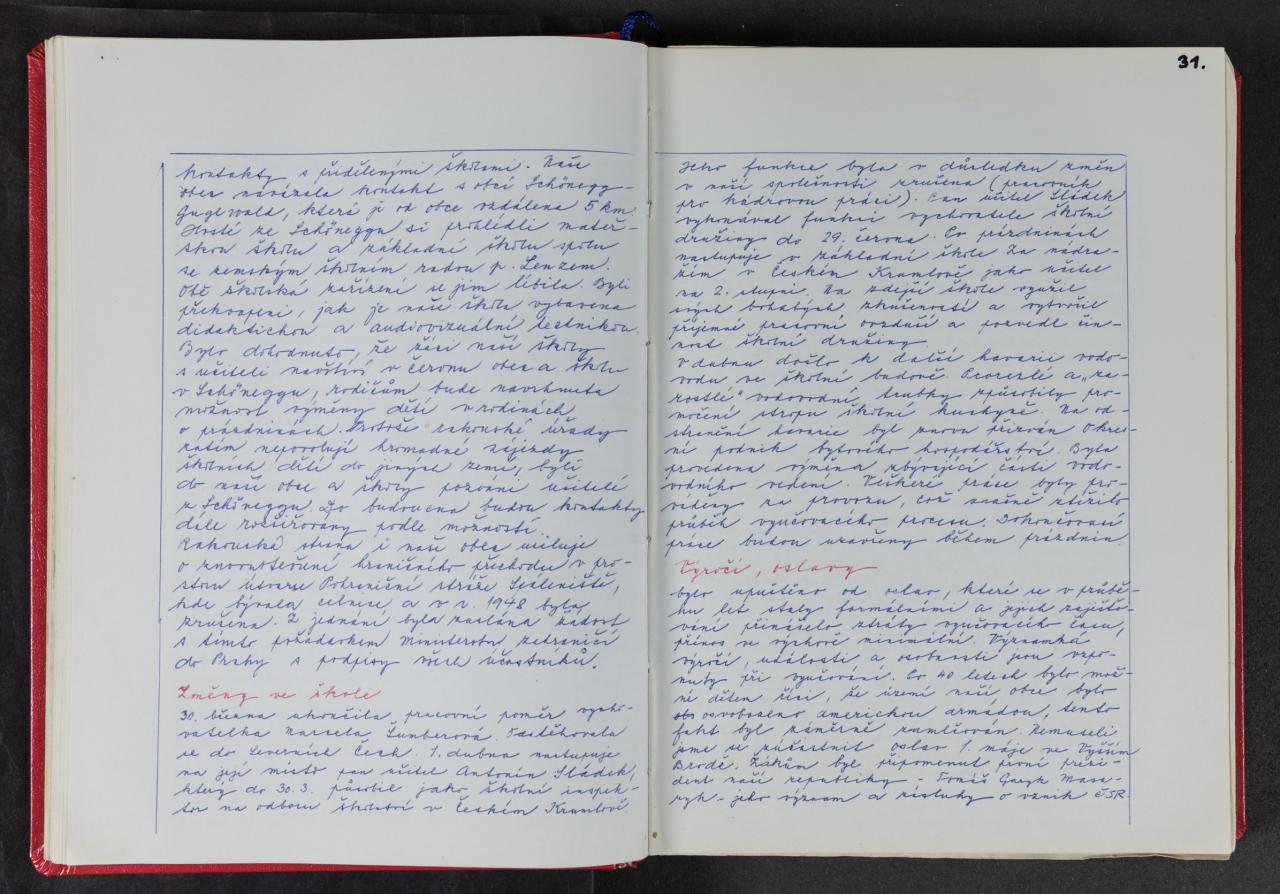 kontakty s přidělenými školami. Naše
obec navázala kontakt s obcí Schönegg-
Guglwald, která je od obce vzdálena 5 km.
Hosté ze Schöneggu si prohlédli mateř-
skou školu a základní školu spolu
se zemským školním radou p. Lenzem.
Obě školská zařízení se jim líbila. Byli
překvapeni, jak je naše škola vybavena
didaktickou a audiovizuální technikou.
Bylo dohodnuto, že žáci naší školy
s učiteli navštíví v červnu obec a školu
v Schöneggu, rodičům bude navrhnuta
možnost výměny dětí v rodinách
o prázdninách. Protože rakouské úřady
zatím nepovolují hromadné zájezdy
školních dětí do jiných zemí, byli
do naší obce a školy pozváni učitelé
z Schöneggu. Do budoucna budou kontakty
dále rozšiřovány podle možností.
Rakouská strana i naše obec usiluje
o znovuotevření hraničního přechodu v pro-
storu útvaru Pohraniční stráže
kde bývala celnice, a v r. 1948 byla
zrušena. Z jednání byla zaslána žádost
s tímto požadavkem Ministerstvu zahraničí
do Prahy s podpisy všech účastníků.
Změny ve škole
30. března ukončila pracovní poměr vycho-
vatelka Marcela Šumberová. Odstěhovala
se do Severních Čech. 1. dubna nastupuje
na její místo pan učitel Antonín Sládek,
který do 30.3. působil jako školní inspek-
tor na odboru školství v Českém Krumlově.
31.
Jeho funkce byla v důsledku změn
v naší společnosti zrušena (pracovník
pro kádrovou práci). Pan učitel Sládek
vykonával funkci vychovatele školní
družiny do 29. června. Po prázdninách
nastupuje v základní škole Za nádra-
žím v Českém Krumlově jako učitel
na 2. stupni. Na zdejší škole využil
svých bohatých zkušeností a vytvořil
příjemné pracovní ovzduší a pozvedl čin-
nost školní družiny.
V dubnu došlo k další havarii vodo-
vodu ve školní budově. Prorezlé a „za-
rostlé" vodovodní trubky způsobily pro-
močení stropu školní kuchyně. Na od-
stranění havarie byl znovu přizván Okres-
ní podnik bytového hospodářství. Byla
provedena výměna zbývající části vodo-
vodního vedení. Veškeré práce byly pro-
váděny za provozu, což značně ztížilo
průběh vyučovacího procesu. Dokončovací
práce budou uzavřeny během prázdnin.
Výročí, oslavy
bylo upuštěno od oslav, které se v průbě-
hu let staly formálními a jejich zajišťo-
vání přinášelo ztráty vyučovacího času,
přínos ve výchově minimální. Významná
výročí, události a osobnosti jsou vzpo-
nuty při vyučování. Po 40 letech bylo mož-
né dětem říci, že území naší obce bylo
osvobozeno americkou armádou, tento
fakt byl záměrně zamlčován. Nemuseli
jsme se zúčastnit oslav 1. máje ve Vyšším
Brodě. Žákům byl připomenut první prezi-
dent naší republiky - Tomáš Garyk Masa-
ryk - jeho význam a zásluhy o vznik ČSR.